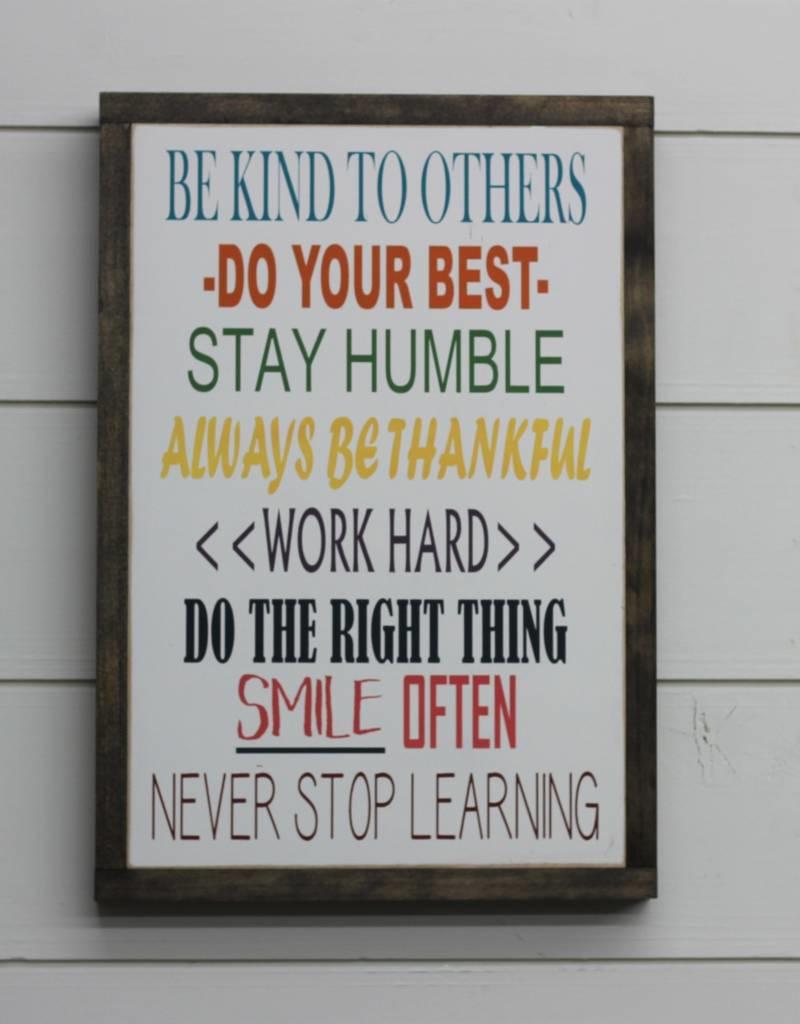 BE KIND TO OTHERS
-DO YOUR BEST-
STAY HUMBLE
ALWAYS BE THANKFUL
<<WORK HARD>>
DO THE RIGHT THING
SMILE OFTEN
NEVER STOP LEARNING